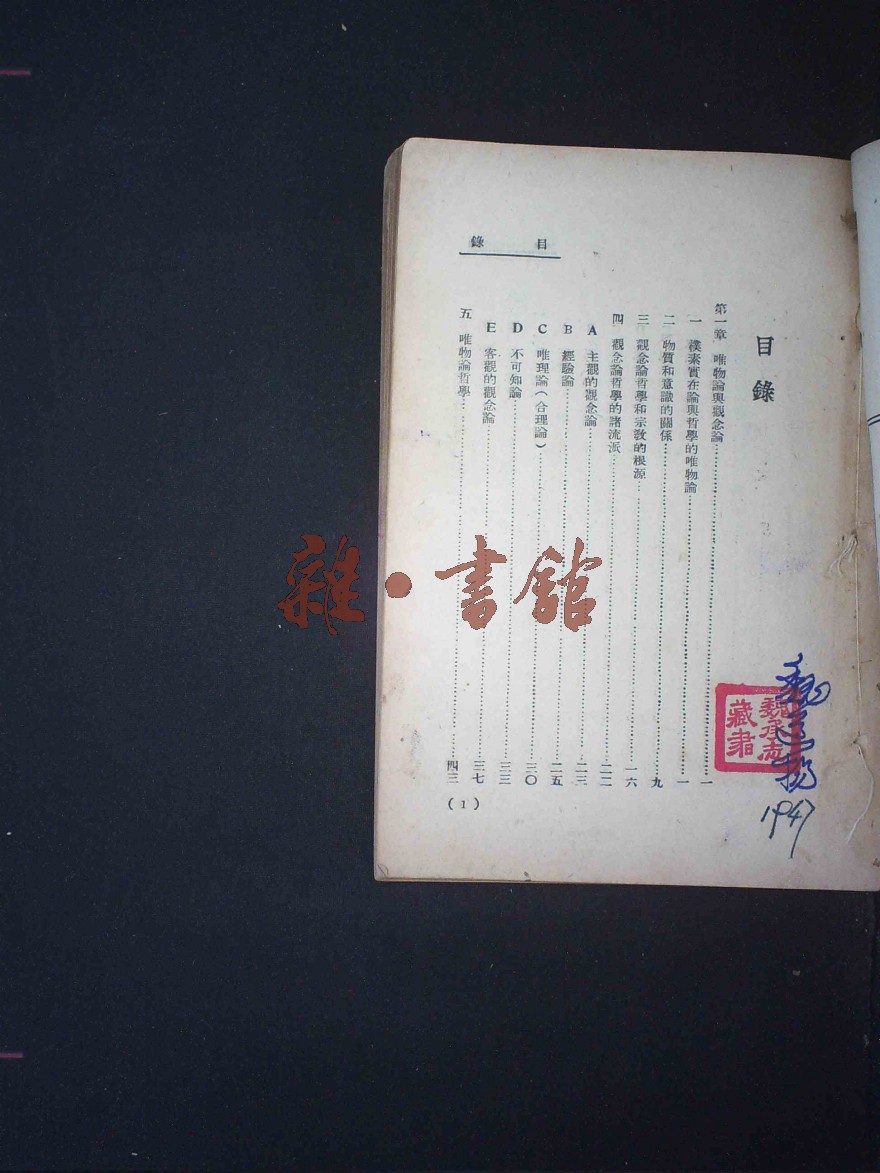 目錄
目錄
第一章 唯物論與觀念論……一
一 樸素實在論與哲學的唯物論……一
二 物質和意識的關係……九
三 觀念論哲學和宗教的根源……一六
四 觀念論哲學的諸流派……二二
A 主觀的觀念論……二三
B 經驗論……二五
C 唯理論（合理論）……三〇
D 不可知論……三三
E 客觀的觀念論……三七
五 唯物論哲學……四三
(1)
魏承志
藏書
1947
雜·書館